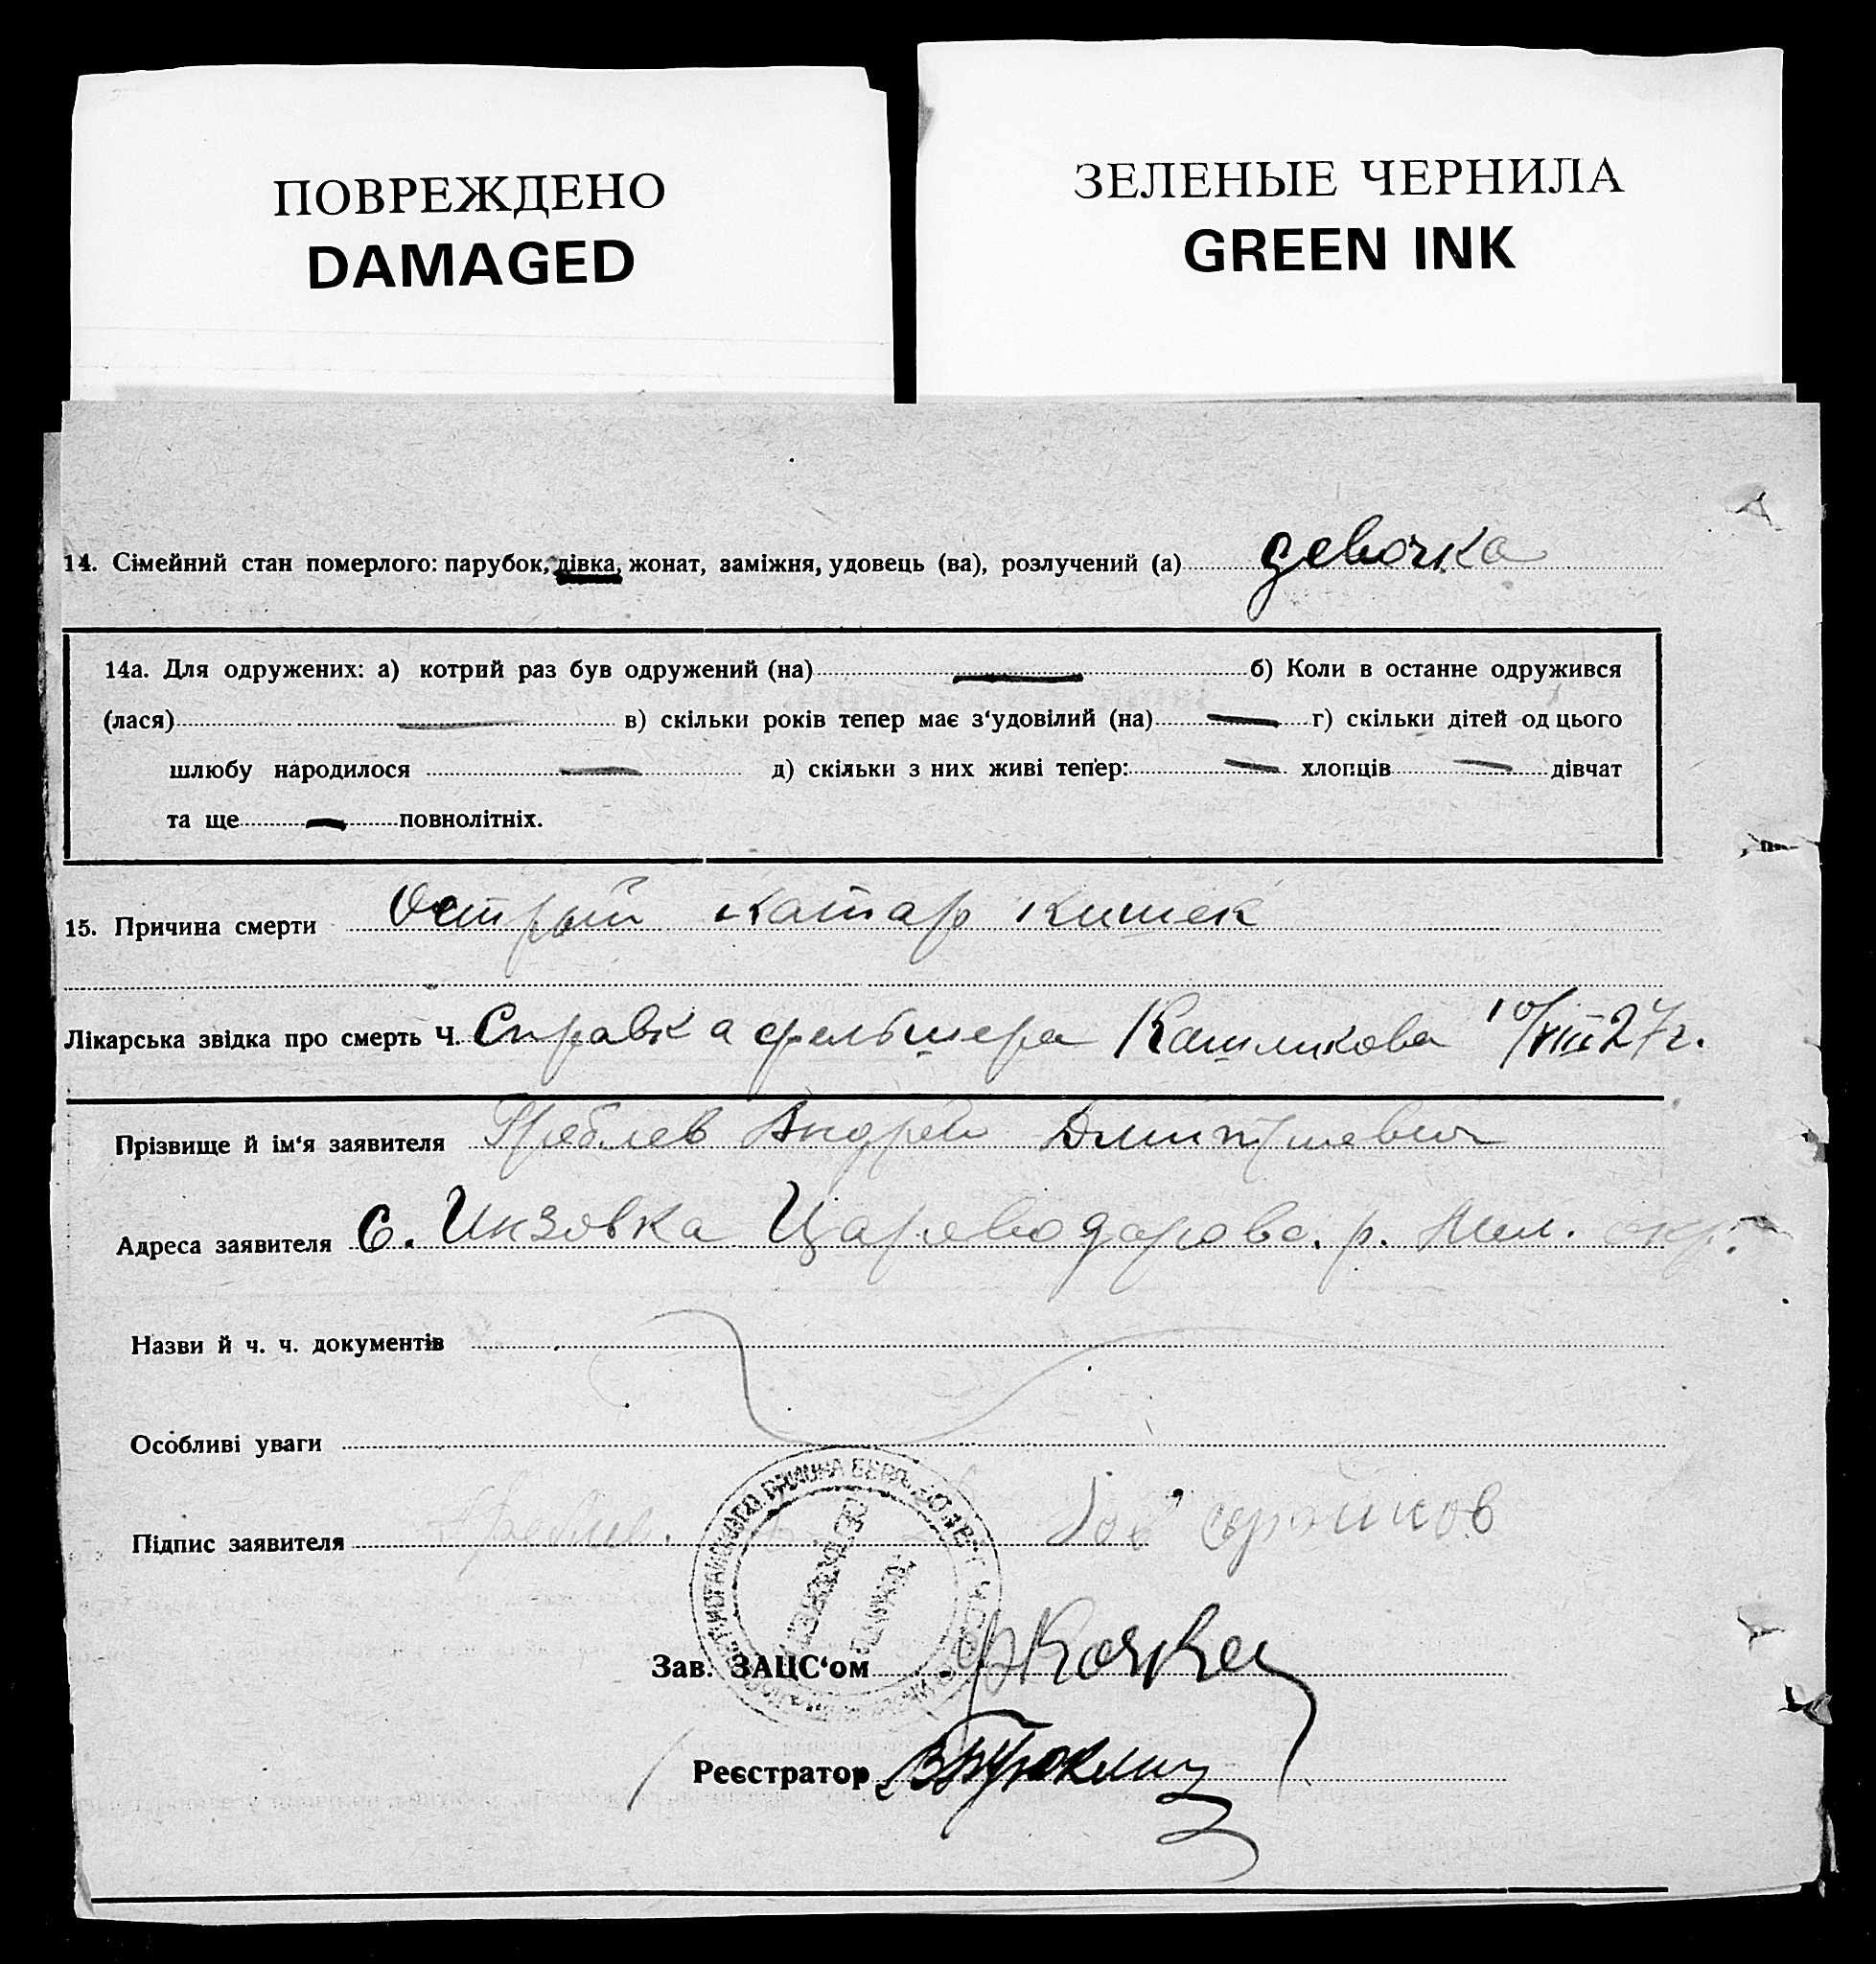 ПОВРЕЖДЕНО
DAMAGED
ЗЕЛЕНЫЕ ЧЕРНИЛА
GREEN INK
14. Сімейний стан померлого: парубок, дівка, жонат, заміжня, удовець (ва), розлучений (а) девочка
14а. Для одружених: а) котрий раз був одружений (на) — б) Коли в останне одружився
(лася) — в) скільки років тепер має з'удовілий (на) — г) скільки дітей од цього
шлюбу народилося — д) скільки з них живі тепер: — хлопців — дівчат
та ще — повнолітніх.
15. Причина смерти Острый катар кишек
Лікарська звідка про смерть Ч. Справка фельшера Кашликова 10/VIII 27 г.
Прізвище й ім'я заявителя Андрей Дмитриевич
Адреса заявителя с. Инзовка Цареводаровс. р. Мел. окр.
Назви й ч. ч. документів
Особливі уваги
Підпис заявителя
Зав. ЗАЦС'ом
Реєстратор